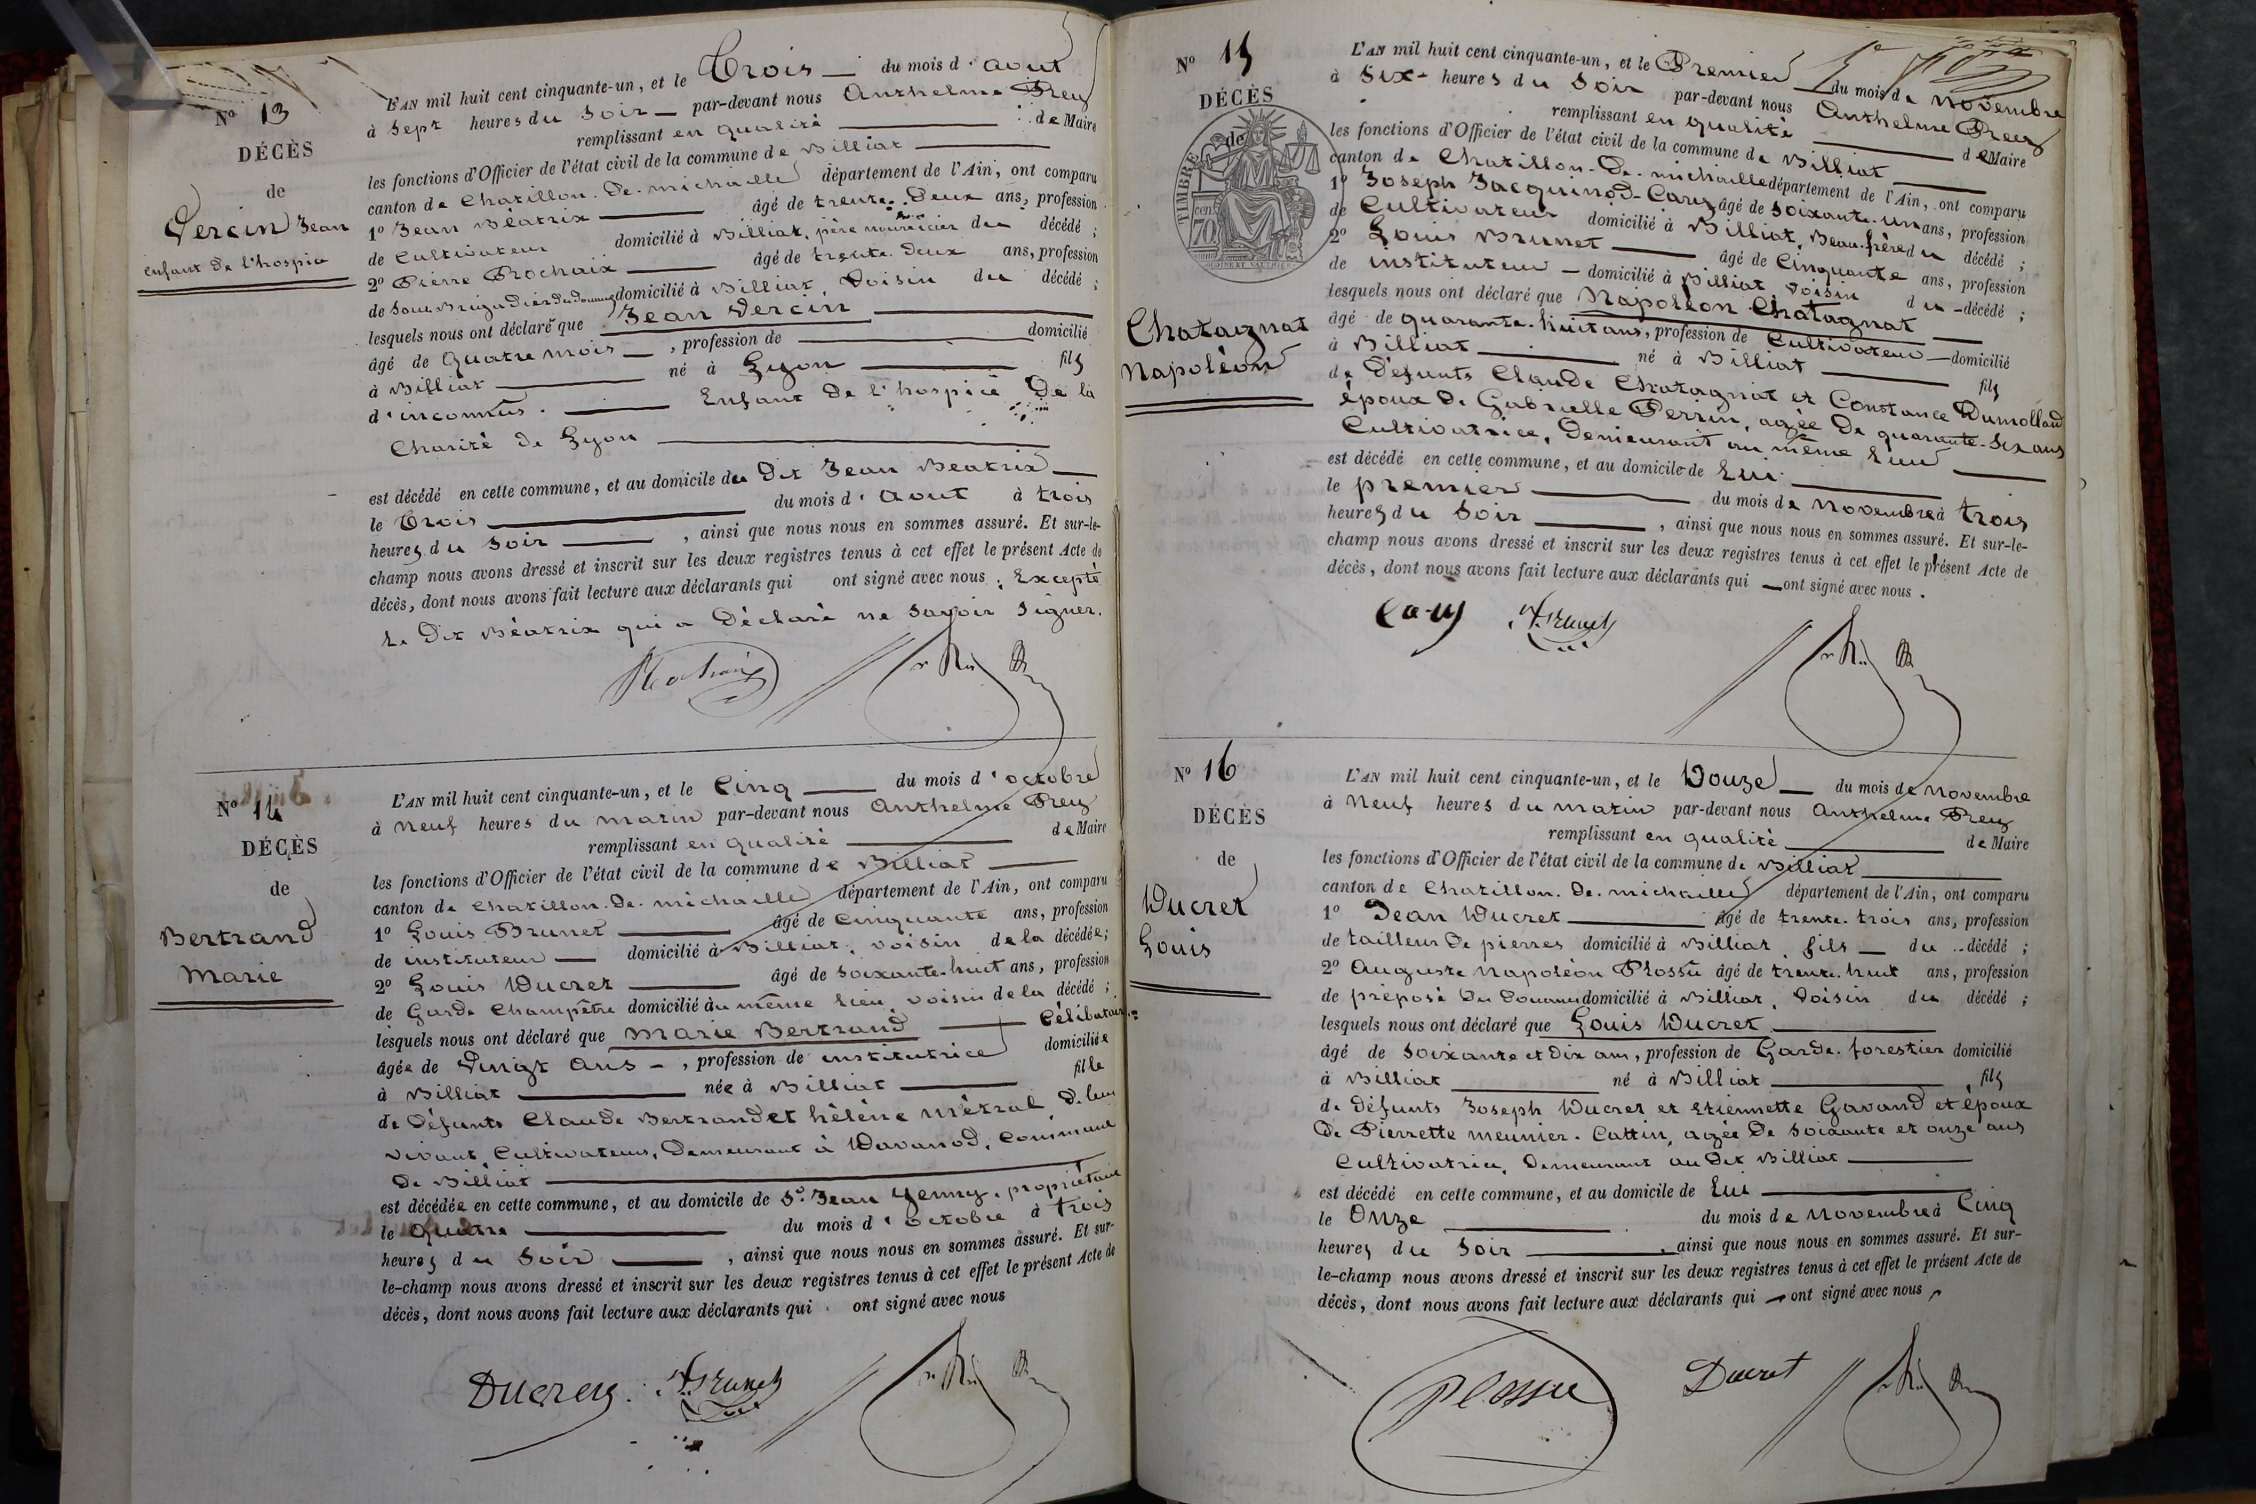 N° 13
DÉCÈS
de
Vercin Jean
enfant de l'hospice
L'AN mil huit cent cinquante-un, et le Trois du mois d'aout
à Sept heures du Soir par-devant nous Anthelme Prez
remplissant en qualité de Maire
les fonctions d'Officier de l'état civil de la commune de Billiat
canton de Chatillon-De-michaille département de l'Ain, ont comparu
1° Jean Béatrix âgé de trente-Deux ans, profession
de Cultivateur domicilié à Billiat, père nourricier du décédé ;
2° Pierre Prochaix âgé de trente-Deux ans, profession
de Sous-Brigadier des Douanes domicilié à Billiat, Voisin du décédé ;
lesquels nous ont déclaré que Jean Vercin
âgé de Quatre mois, profession de domicilié
à Billiat né à Lyon fils
d'inconnus. Enfant De l'hospice De la
Charité de Lyon
est décédé en cette commune, et au domicile du Dit Jean Beatrix
le Trois du mois d'Aout à trois
heures du Soir, ainsi que nous nous en sommes assuré. Et sur-le-
champ nous avons dressé et inscrit sur les deux registres tenus à cet effet le présent Acte de
décès, dont nous avons fait lecture aux déclarants qui ont signé avec nous, Excepté
Le Dit Béatrix qui a Déclaré ne Savoir Signer.
N° 14
DÉCÈS
de
Bertrand
Marie
L'AN mil huit cent cinquante-un, et le Cinq du mois d'octobre
à Neuf heures du matin par-devant nous Anthelme Prez
remplissant en qualité de Maire
les fonctions d'Officier de l'état civil de la commune de Billiat
canton de Chatillon-De-michaille département de l'Ain, ont comparu
1° Louis Brunet âgé de Cinquante ans, profession
de instituteur domicilié à Billiat, voisin de la décédée ;
2° Louis Ducret âgé de Soixante-huit ans, profession
de Garde Champêtre domicilié au même lieu, voisin de la décédé ;
lesquels nous ont déclaré que Marie Bertrand Célibataire
âgée de Vingt ans, profession de institutrice domiciliée
à Billiat née à Billiat fille
de Défunts Claude Bertrand et hélène métral, De leur
vivant, Cultivateurs, Demeurant à Davanod, Commune
De Billiat
est décédée en cette commune, et au domicile de Sr. Jean Jenny, propriétaire
le Quatre du mois d'octobre à trois
heures du Soir, ainsi que nous nous en sommes assuré. Et sur-
le-champ nous avons dressé et inscrit sur les deux registres tenus à cet effet le présent Acte de
décès, dont nous avons fait lecture aux déclarants qui ont signé avec nous
Ducret Brunet
N° 15
DÉCÈS
de
TIMBRE
70 cent
Chatagnat
Napoléon
L'AN mil huit cent cinquante-un, et le Premier du mois de Novembre
à Six heures du Soir par-devant nous Anthelme Prez
remplissant en qualité de Maire
les fonctions d'Officier de l'état civil de la commune de Billiat
canton de Chatillon-De-michaille département de l'Ain, ont comparu
1° Joseph Jacquinod-Carry âgé de Soixante-un ans, profession
de Cultivateur domicilié à Billiat, Beau-frère du décédé ;
2° Louis Brunet âgé de Cinquante ans, profession
de instituteur domicilié à Billiat voisin du décédé ;
lesquels nous ont déclaré que Napoléon Chatagnat
âgé de quarante-huit ans, profession de Cultivateur domicilié
à Billiat né à Billiat fils
de Défunts Claude Chatagnat et Constance Dumolland
époux De Gabrielle Perrin, agée De quarante-Six ans
Cultivatrice, Demeurant au même Lieu
est décédé en cette commune, et au domicile de Lui
le premier du mois de Novembre à trois
heures du Soir, ainsi que nous nous en sommes assuré. Et sur-le-
champ nous avons dressé et inscrit sur les deux registres tenus à cet effet le présent Acte de
décès, dont nous avons fait lecture aux déclarants qui ont signé avec nous.
Brunet
N° 16
DÉCÈS
de
Ducret
Louis
L'AN mil huit cent cinquante-un, et le Douze du mois de Novembre
à Neuf heures du matin par-devant nous Anthelme Prez
remplissant en qualité de Maire
les fonctions d'Officier de l'état civil de la commune de Billiat
canton de Chatillon-De-michaille département de l'Ain, ont comparu
1° Jean Ducret âgé de trente-trois ans, profession
de tailleur De pierres domicilié à Billiat, fils du décédé ;
2° Auguste Napoléon Plossu âgé de trente-huit ans, profession
de préposé Des Douanes domicilié à Billiat, Voisin du décédé ;
lesquels nous ont déclaré que Louis Ducret
âgé de Soixante et Dix ans, profession de Garde-forestier domicilié
à Billiat né à Billiat, fils
de Défunts Joseph Ducret et Etiennette Gavand et époux
De Pierrette meunier-Cattin, agée De Soixante et onze ans
Cultivatrice, Demeurant au Dit Billiat
est décédé en cette commune, et au domicile de Lui
le Onze du mois de Novembre à Cinq
heures du Soir, ainsi que nous nous en sommes assuré. Et sur-
le-champ nous avons dressé et inscrit sur les deux registres tenus à cet effet le présent Acte de
décès, dont nous avons fait lecture aux déclarants qui ont signé avec nous.
Plossu Ducret